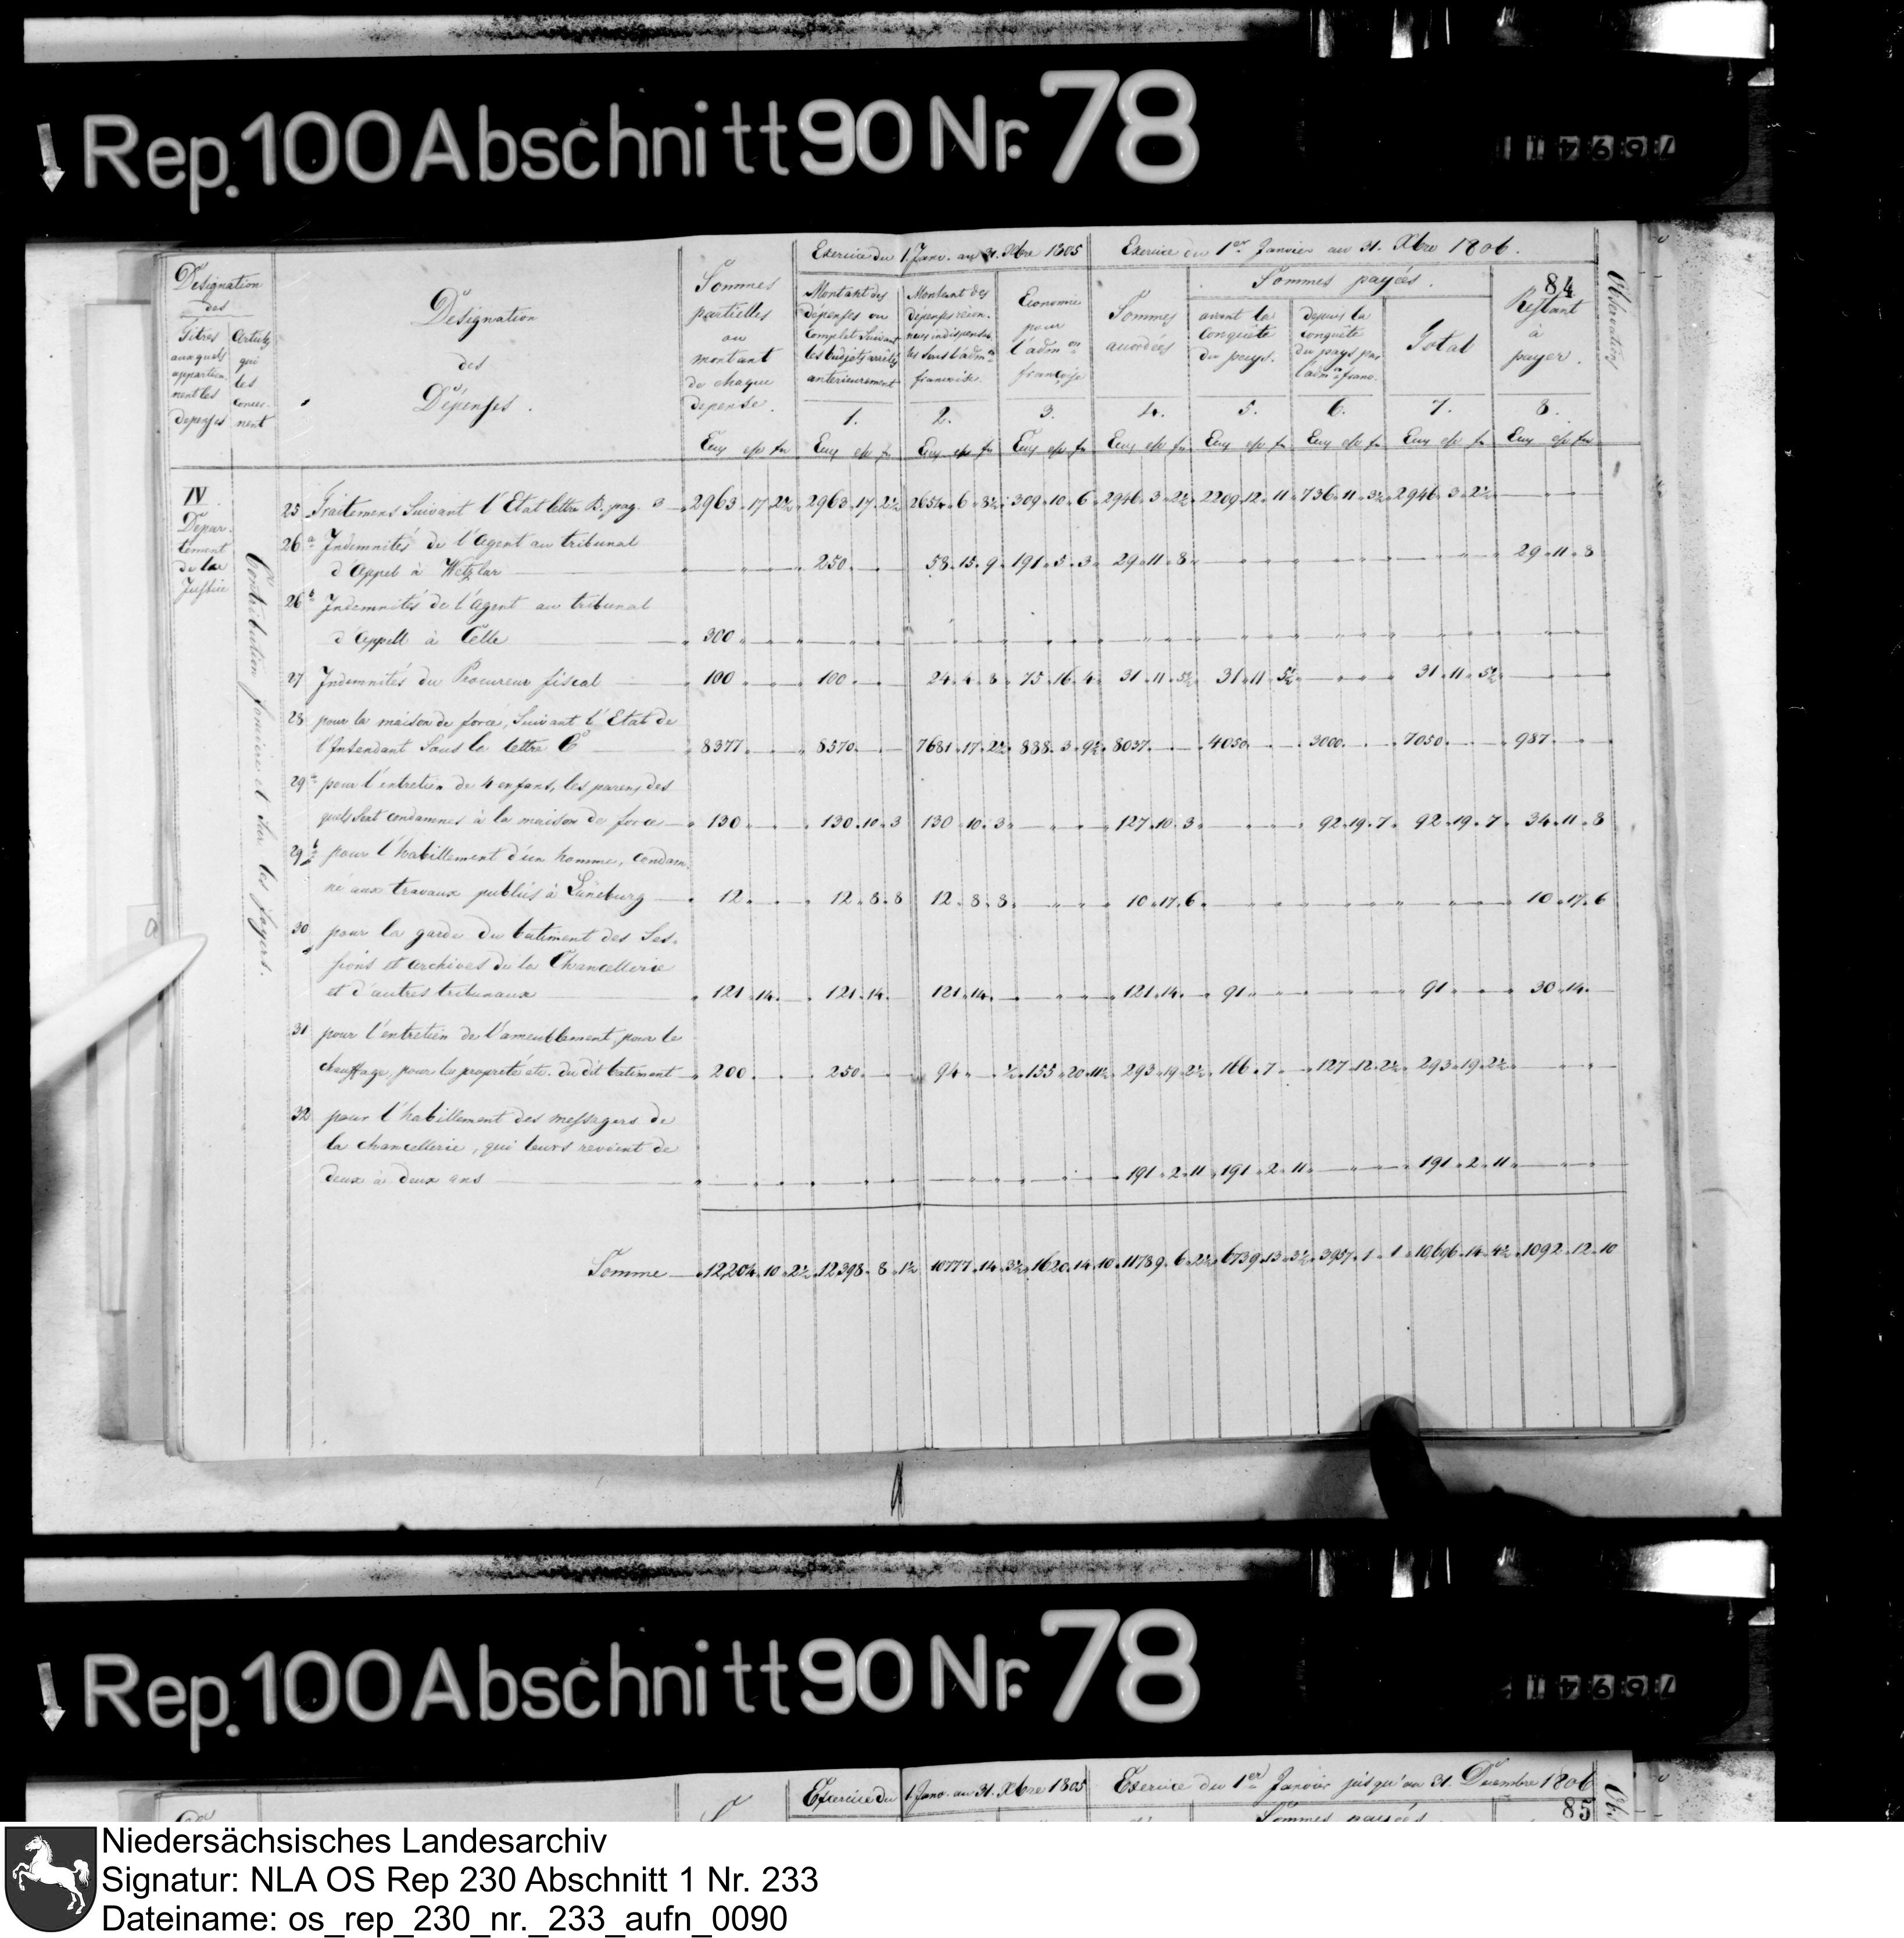 Rep. 100 Abschnitt 90 Nr. 78
Désignation des
Titres auxquels appartiennent les Depenses
Articles qui les concernent
Désignation
des
Dépenses.
Sommes
partielles
ou
montant
de chaque
depense.
Exercice du 1. Janv. au 31. Xbre 1805
Montant des
dépenses au
complet suivant
les budjets arrêtés
anterieurement
1.
Montant des
depenses recon-
nues indispensa-
bles sous l'adm.on
francoise.
2.
Economie
pour
l'adm.on
françoise
3.
Exercice du 1er Janvier au 31. Xbre 1806.
Sommes
accordées
4.
Sommes payées.
avant la
conquête
du pays.
5.
depuis la
conquête
du pays par
l'adm.on franc.
6.
Total
7.
84
Restant
à
payer.
8.
Observations
IV
Depar-
tement
de la
Justice
Contribution foncière et sur les foyers.
25 Traitemens Suivant l'Etat lettre B. pag. 3 2963 17 2½ 2963 17 2½ 2654 6 8½ 309 10 6 2946 3 2½ 2209 12 11 736 11 3½ 2946 3 2½
26 a Indemnités de l'Agent au tribunal
d'Appel à Wetzlar 250 58 15 9 191 5 3 29 11 8 29 11 8
26 b Indemnités de l'Agent au tribunal
d'Appell à Celle 300
27 Indemnités du Procureur fiscal 100 100 24 4 8 75 16 4 31 11 5½ 31 11 5½ 31 11 5½
28 pour la maison de force, Suivant l'Etat de
l'Intendant Sous la lettre C 8377 8570 7681 17 2½ 888 3 9½ 8037 4050 3000 7050 987
29 a pour l'entretien de 4 enfans, les parens des
quels sont condamnes à la maison de force 130 130 10 3 130 10 3 127 10 3 92 19 7 92 19 7 34 11 8
29 b pour l'habillement d'un homme, condam-
né aux travaux publics à Lüneburg 12 12 8 8 12 8 8 10 17 6 10 17 6
30 pour la garde du batiment des Ses-
sions et archives de la Chancellerie
et d'autres tribunaux 121 14 121 14 121 14 121 14 91 91 30 14
31 pour l'entretien de l'ameublement, pour le
chauffage, pour la propreté etc. du dit batiment 200 250 94 ½ 155 20 11½ 293 19 2½ 166 7 127 12 2½ 293 19 2½
32 pour l'habillement des messagers de
la chancellerie, qui leurs revient de
deux à deux ans 191 2 11 191 2 11 191 2 11
Somme 12,204 10 2½ 12,398 8 1½ 10777 14 3½ 1620 14 10 11789 6 2½ 6739 13 3½ 3957 1 1 10696 14 4½ 1092 12 10
Rep. 100 Abschnitt 90 Nr. 78
Exercice du 1. Janv. au 31. Xbre 1805
Exercice du 1er Janvier jusqu'au 31. Decembre 1806
Sommes payées
85
Niedersächsisches Landesarchiv
Signatur: NLA OS Rep 230 Abschnitt 1 Nr. 233
Dateiname: os_rep_230_nr._233_aufn_0090